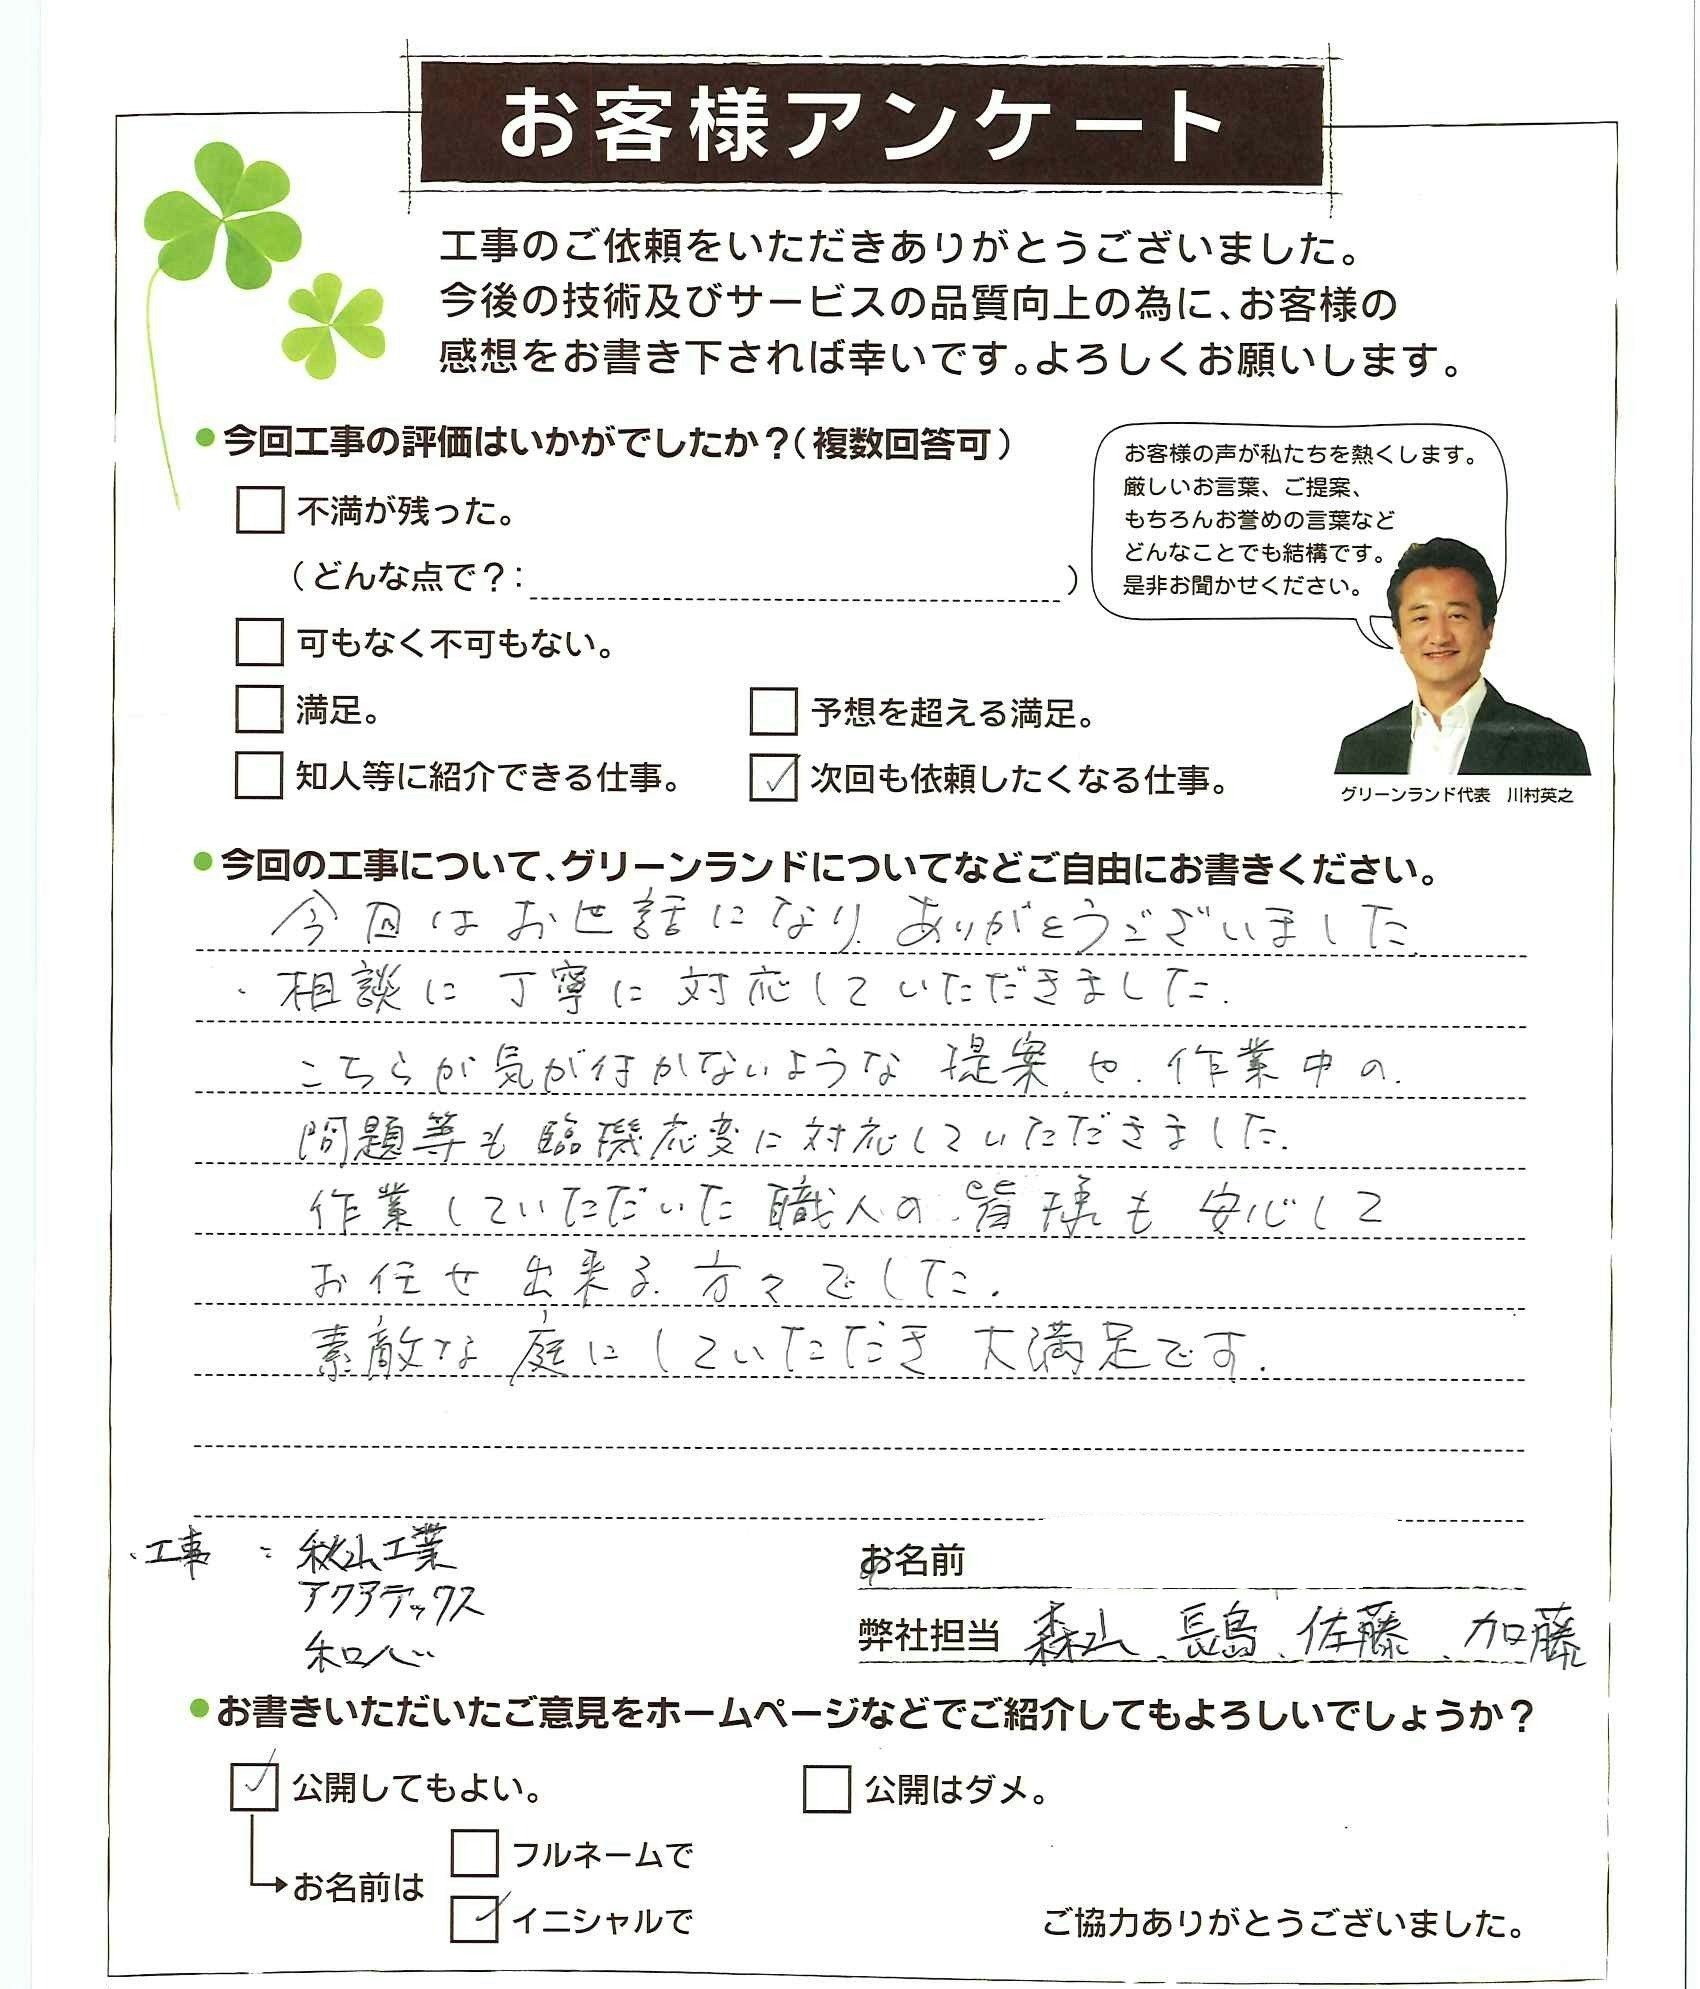 お客様アンケート
工事のご依頼をいただきありがとうございました。
今後の技術及びサービスの品質向上の為に、お客様の
感想をお書き下されば幸いです。よろしくお願いします。
●今回工事の評価はいかがでしたか？（複数回答可）
お客様の声が私たちを熱くします。
厳しいお言葉、ご提案、
もちろんお誉めの言葉など
どんなことでも結構です。
是非お聞かせください。
□ 不満が残った。
（どんな点で？：　　　　　）
□ 可もなく不可もない。
□ 満足。　□ 予想を超える満足。
□ 知人等に紹介できる仕事。　☑ 次回も依頼したくなる仕事。
グリーンランド代表　川村英之
●今回の工事について、グリーンランドについてなどご自由にお書きください。
今回はお世話になり、ありがとうございました。
・相談に丁寧に対応していただきました。
こちらが気が付かないような提案や、作業中の
問題等も臨機応変に対応していただきました。
作業していただいた職人の皆様も安心して
お任せ出来る方々でした。
素敵な庭にしていただき大満足です。
・工事：秋山工業
アクアテックス
和心
お名前
弊社担当 森山、長島、佐藤、加藤
●お書きいただいたご意見をホームページなどでご紹介してもよろしいでしょうか？
☑ 公開してもよい。　□ 公開はダメ。
□ フルネームで
お名前は
☑ イニシャルで
ご協力ありがとうございました。